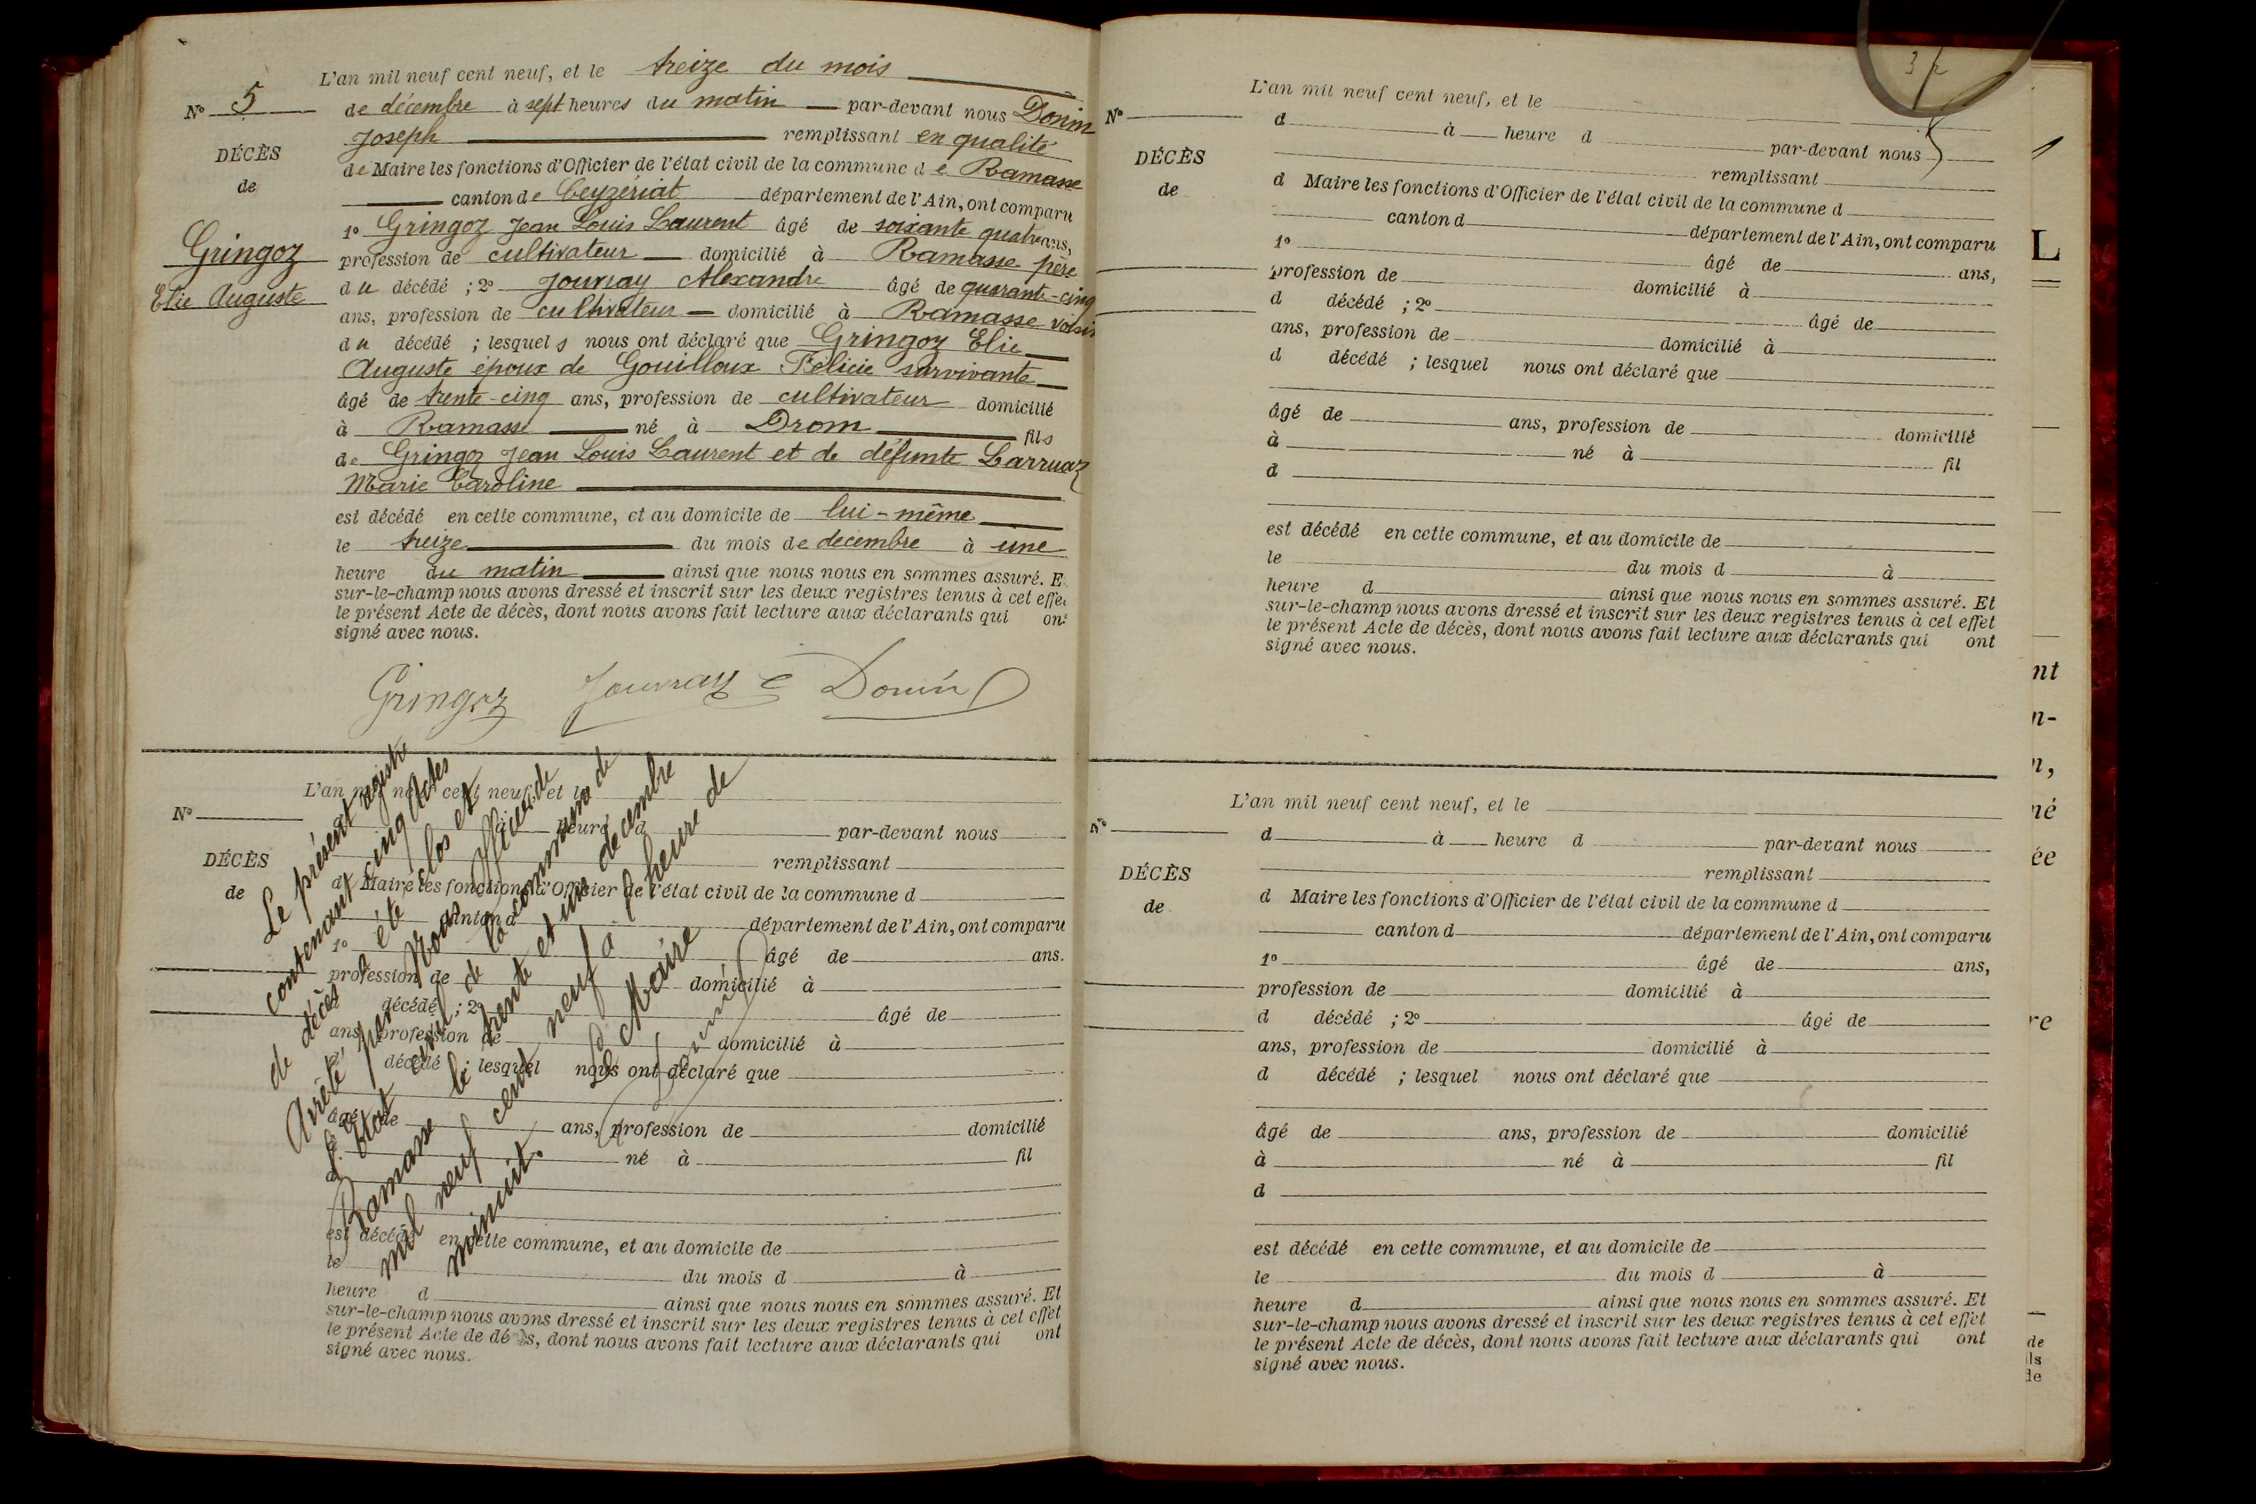 L'an mil neuf cent neuf, et le treize du mois
No 5
de décembre à sept heures du matin par-devant nous Donin
Joseph remplissant en qualité
DÉCÈS
de Maire les fonctions d'Officier de l'état civil de la commune de Ramasse
de
canton de Ceyzériat département de l'Ain, ont comparu
1o Gringoz Jean Louis Laurent âgé de soixante quatre ans,
Gringoz
profession de cultivateur domicilié à Ramasse père
Elie Auguste
du décédé ; 2o Jouvray Alexandre âgé de quarante-cinq
ans, profession de cultivateur domicilié à Ramasse voisin
du décédé ; lesquels nous ont déclaré que Gringoz Elie
Auguste époux de Gouilloux Félicie survivante
âgé de trente-cinq ans, profession de cultivateur domicilié
à Ramasse né à Drom fils
de Gringoz Jean Louis Laurent et de défunte Larruaz
Marie Caroline
est décédé en cette commune, et au domicile de lui-même
le treize du mois de décembre à une
heure du matin ainsi que nous nous en sommes assuré. E
sur-le-champ nous avons dressé et inscrit sur les deux registres tenus à cet effet
le présent Acte de décès, dont nous avons fait lecture aux déclarants qui ont
signé avec nous.
Gringoz Jouvray Donin
L'an mil neuf cent neuf, et le
No
à heure d par-devant nous
remplissant
DÉCÈS
d Maire les fonctions d'Officier de l'état civil de la commune d
de
canton d département de l'Ain, ont comparu
1o âgé de ans.
profession de domicilié à
décédé ; 2o âgé de
ans, profession de domicilié à
décédé ; lesquel nous ont déclaré que
âgé de ans, profession de domicilié
né à fil
d
est décédé en cette commune, et au domicile de
le du mois d à
heure d ainsi que nous nous en sommes assuré. Et
sur-le-champ nous avons dressé et inscrit sur les deux registres tenus à cet effet
le présent Acte de décès, dont nous avons fait lecture aux déclarants qui ont
signé avec nous.
Le présent registre
contenant cinq Actes
de décès a été clos et
Arrêté par Nous Officier de
l'état civil de la commune de
Ramasse le trente et un décembre
mil neuf cent neuf à heure de
minuit.
Le Maire
Donin
L'an mil neuf cent neuf, et le
No
d à heure d par-devant nous
remplissant
DÉCÈS
d Maire les fonctions d'Officier de l'état civil de la commune d
de
canton d département de l'Ain, ont comparu
1o âgé de ans,
profession de domicilié à
d décédé ; 2o âgé de
ans, profession de domicilié à
d décédé ; lesquel nous ont déclaré que
âgé de ans, profession de domicilié
à né à fil
d
est décédé en cette commune, et au domicile de
le du mois d à
heure d ainsi que nous nous en sommes assuré. Et
sur-le-champ nous avons dressé et inscrit sur les deux registres tenus à cet effet
le présent Acte de décès, dont nous avons fait lecture aux déclarants qui ont
signé avec nous.
L'an mil neuf cent neuf, et le
No
d à heure d par-devant nous
remplissant
DÉCÈS
d Maire les fonctions d'Officier de l'état civil de la commune d
de
canton d département de l'Ain, ont comparu
1o âgé de ans,
profession de domicilié à
d décédé ; 2o âgé de
ans, profession de domicilié à
d décédé ; lesquel nous ont déclaré que
âgé de ans, profession de domicilié
à né à fil
d
est décédé en cette commune, et au domicile de
le du mois d à
heure d ainsi que nous nous en sommes assuré. Et
sur-le-champ nous avons dressé et inscrit sur les deux registres tenus à cet effet
le présent Acte de décès, dont nous avons fait lecture aux déclarants qui ont
signé avec nous.
L
nt
n-
n,
né
ée
re
de
ls
de